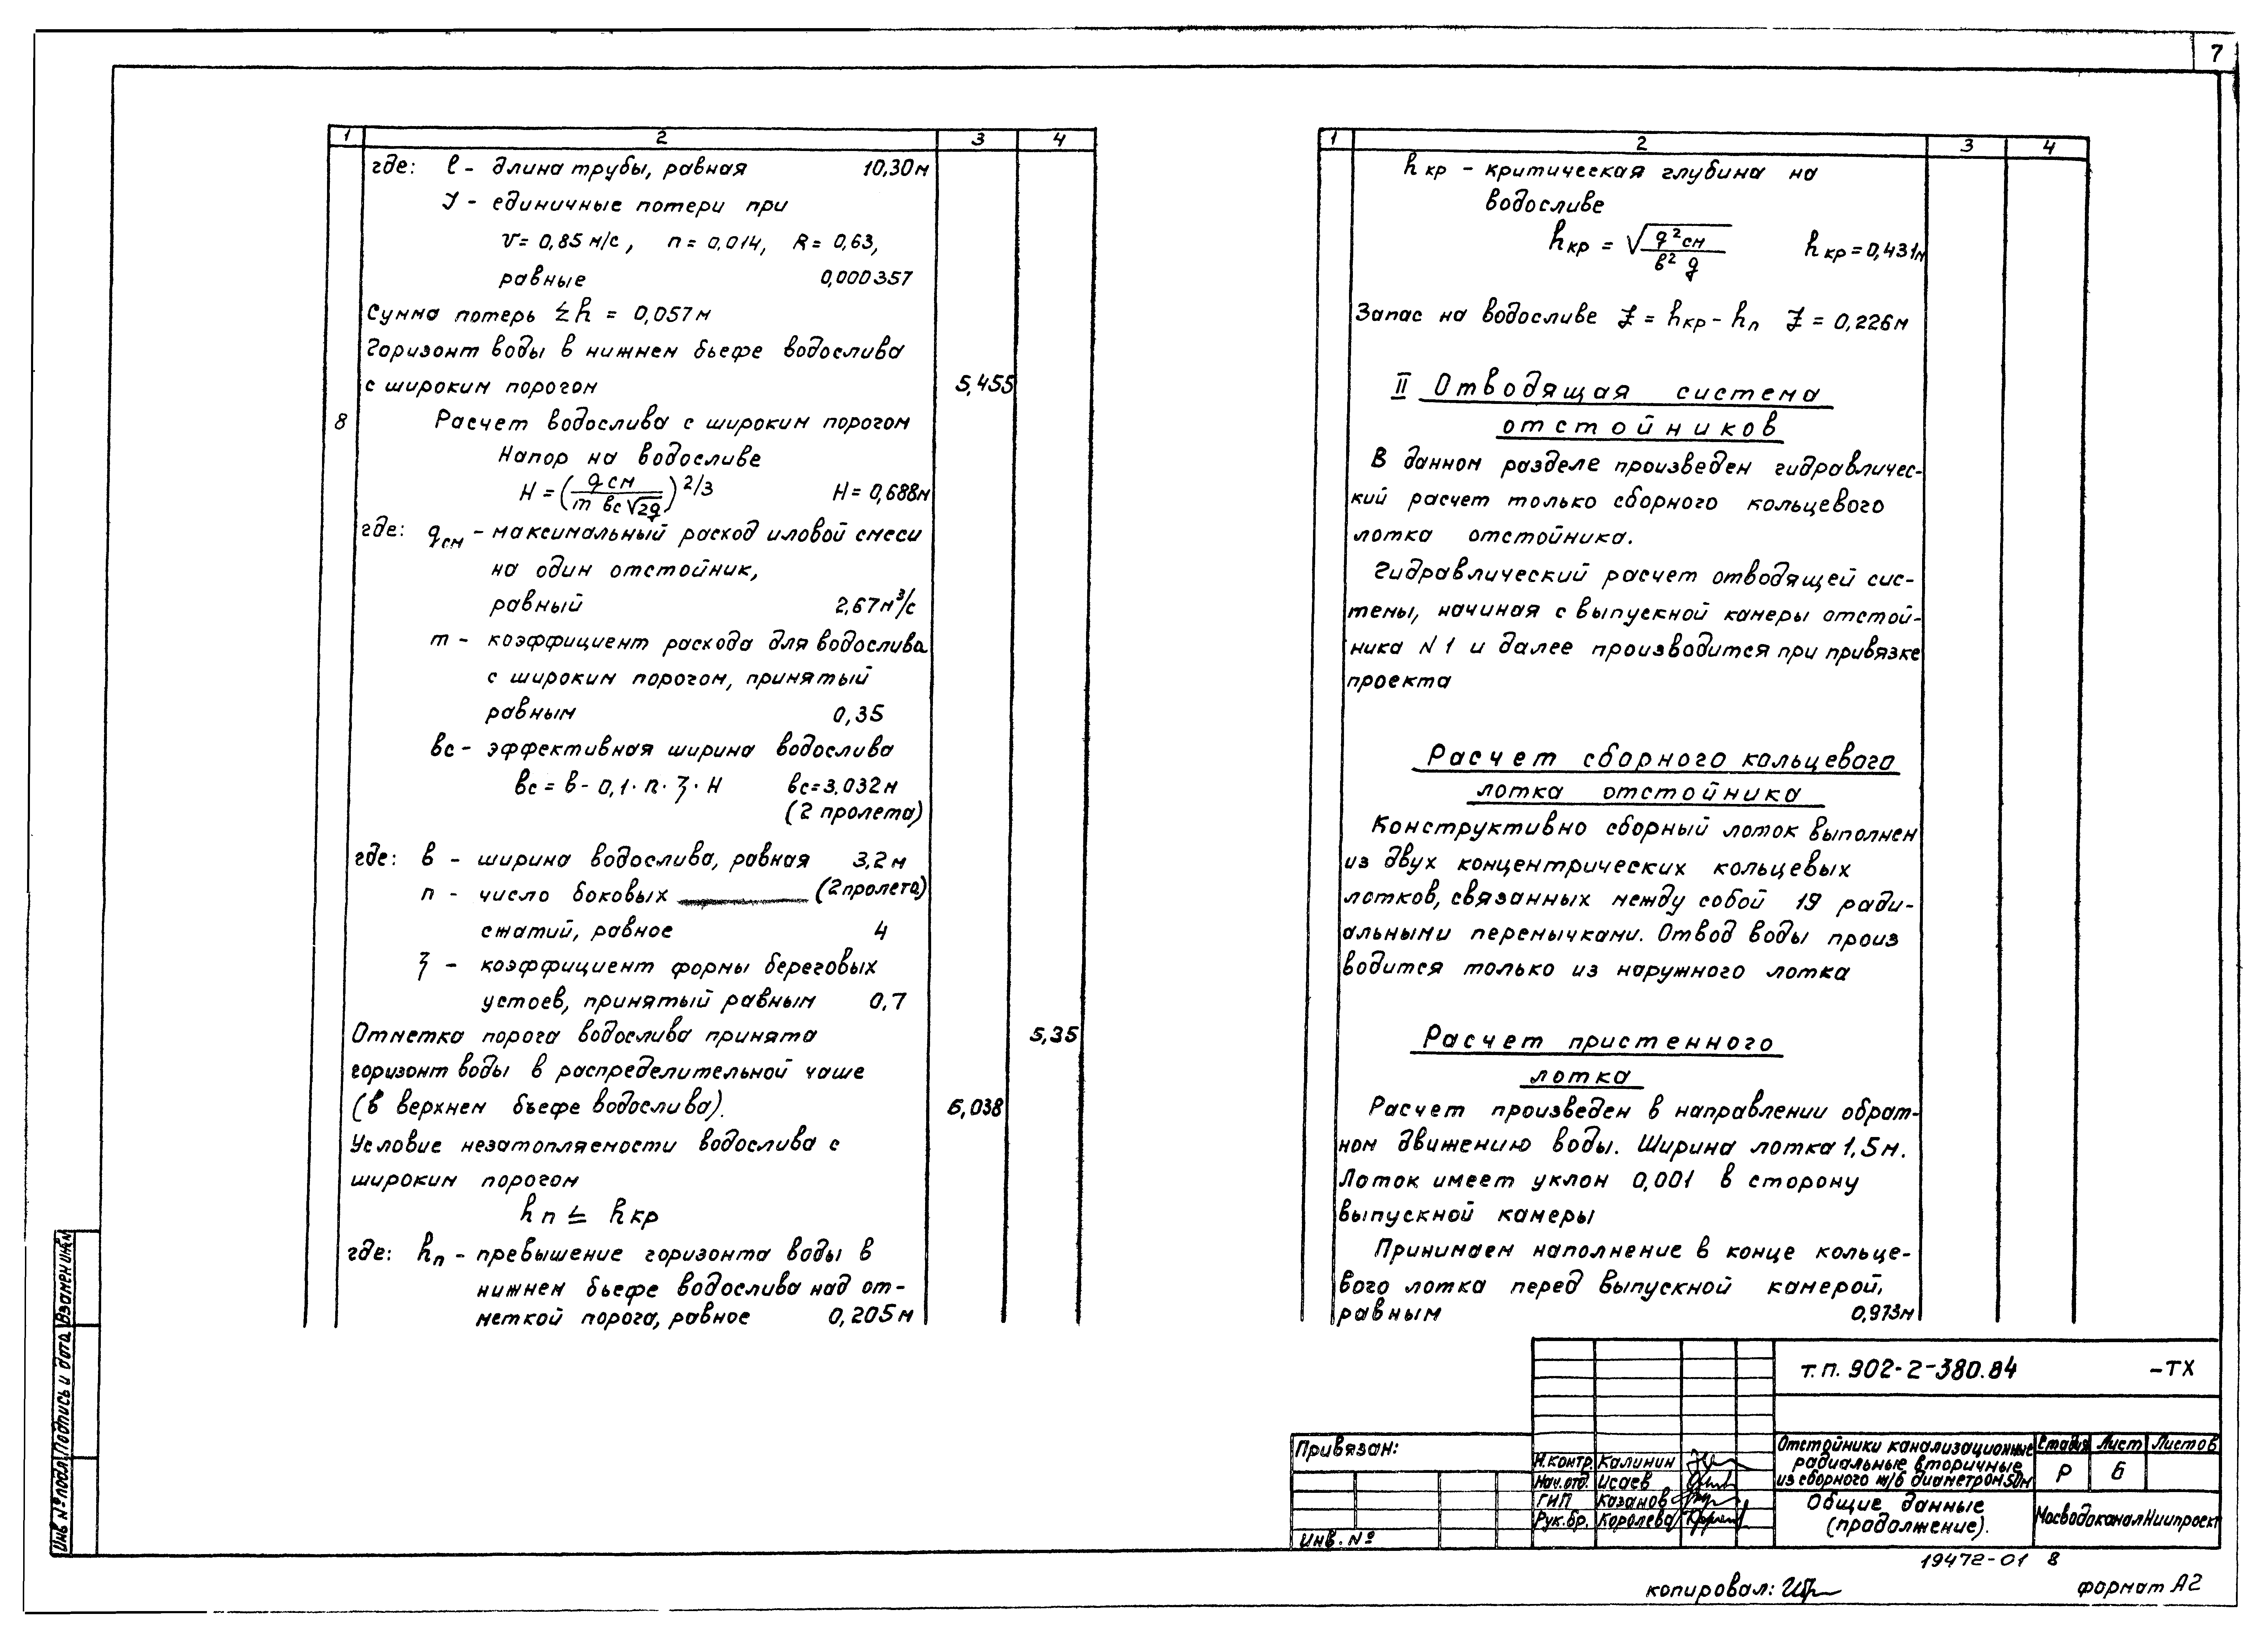 7
1 2 3 4
где: l - длина трубы, равная 10,30м
J - единичные потери при
v = 0,85 м/с, n = 0,014, R = 0,63,
равные 0,000357
Сумма потерь Σh = 0,057м
Горизонт воды в нижнем бьефе водослива
с широким порогом 5,455
8 Расчет водослива с широким порогом
Напор на водосливе
H = (qсм / m вс√2g)^2/3 H = 0,688м
где: qсм - максимальный расход иловой смеси
на один отстойник,
равный 2,67м³/с
m - коэффициент расхода для водослива
с широким порогом, принятый
равным 0,35
вс - эффективная ширина водослива
вс = в - 0,1 · n · ξ · H вс = 3.032м
(2 пролета)
где: в - ширина водослива, равная 3,2м
n - число боковых (2 пролета)
сжатий, равное 4
ξ - коэффициент формы береговых
устоев, принятый равным 0,7
Отметка порога водослива принята 5,35
горизонт воды в распределительной чаше
(в верхнем бьефе водослива). 6,038
Условие незатопляемости водослива с
широким порогом
hп ≤ hкр
где: hп - превышение горизонта воды в
нижнем бьефе водослива над от-
меткой порога, равное 0,205м
1 2 3 4
hкр - критическая глубина на
водосливе
hкр = √(q²см / в² g) hкр = 0,431м
Запас на водосливе Z = hкр - hп Z = 0,226м
II Отводящая система
отстойников
В данном разделе произведен гидравличес-
кий расчет только сборного кольцевого
лотка отстойника.
Гидравлический расчет отводящей сис-
темы, начиная с выпускной камеры отстой-
ника N 1 и далее производится при привязке
проекта
Расчет сборного кольцевого
лотка отстойника
Конструктивно сборный лоток выполнен
из двух концентрических кольцевых
лотков, связанных между собой 19 ради-
альными перемычками. Отвод воды произ
водится только из наружного лотка
Расчет пристенного
лотка
Расчет произведен в направлении обрат-
ном движению воды. Ширина лотка 1,5м.
Лоток имеет уклон 0,001 в сторону
выпускной камеры
Принимаем наполнение в конце кольце-
вого лотка перед выпускной камерой,
равным 0,973м
Инв № подл. Подпись и дата Взамен инв.№
Привязан:
Инв. №
Н.контр. Калинин
Нач.отд. Исаев
ГИП Казанов
Рук.бр. Королева
т.п. 902-2-380.84 -ТХ
Отстойники канализационные
радиальные вторичные
из сборного ж/б диаметром 50м
Стадия Лист Листов
Р 6
Общие данные
(продолжение).
МосводоканалНиипроект
19472-01 8
копировал:
формат А2